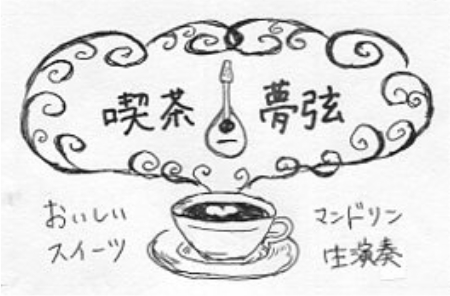 喫茶 夢弦
おいしい
スイーツ
マンドリン
生演奏